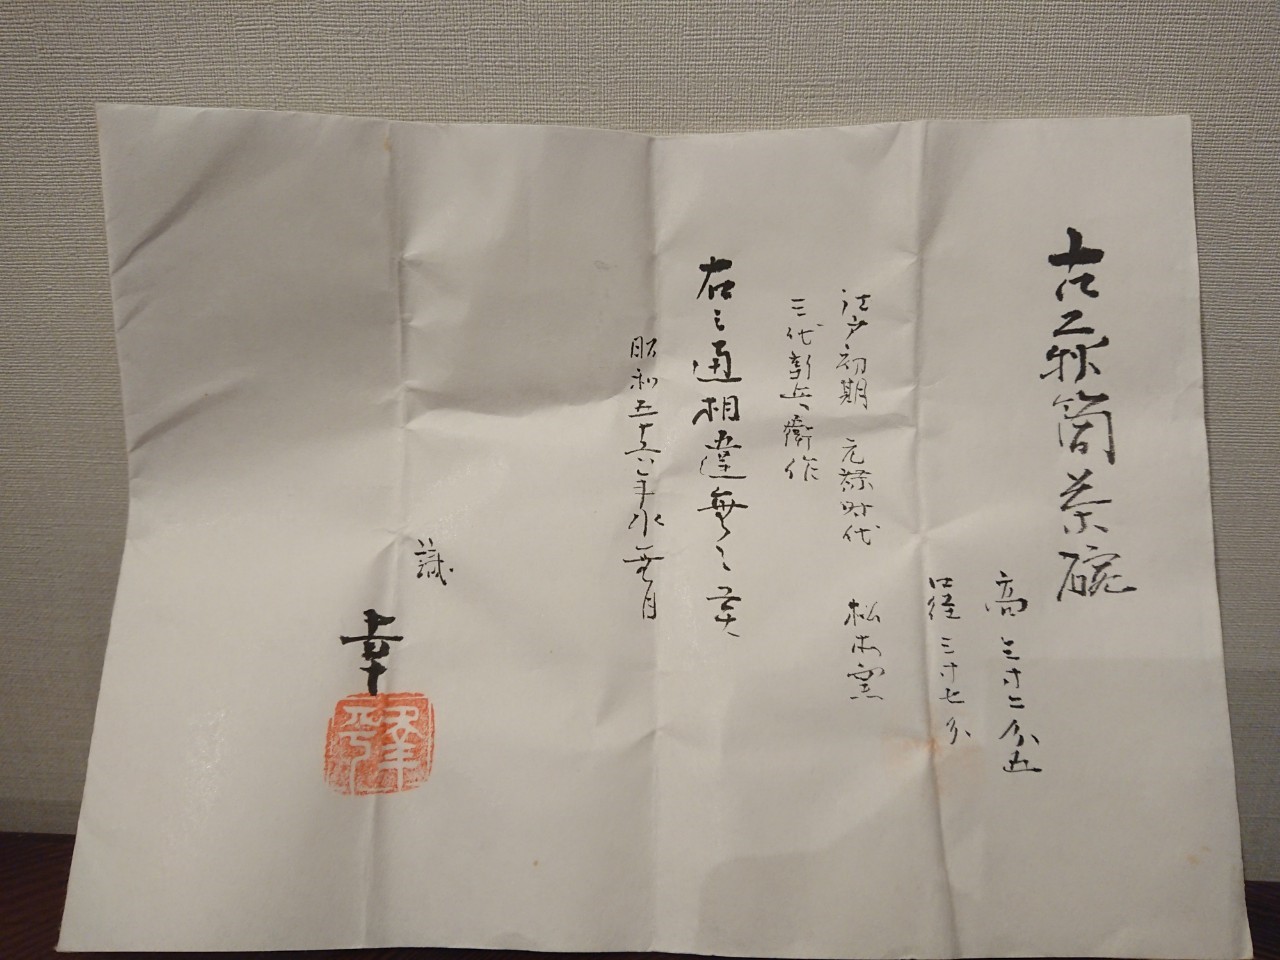 古萩筒茶碗
高 三寸二分五
口径 三寸七分
江戸初期 元禄时代 松本窯
三代新兵衛作
右之通相違無之候
昭和五十六年水無月
識
幸